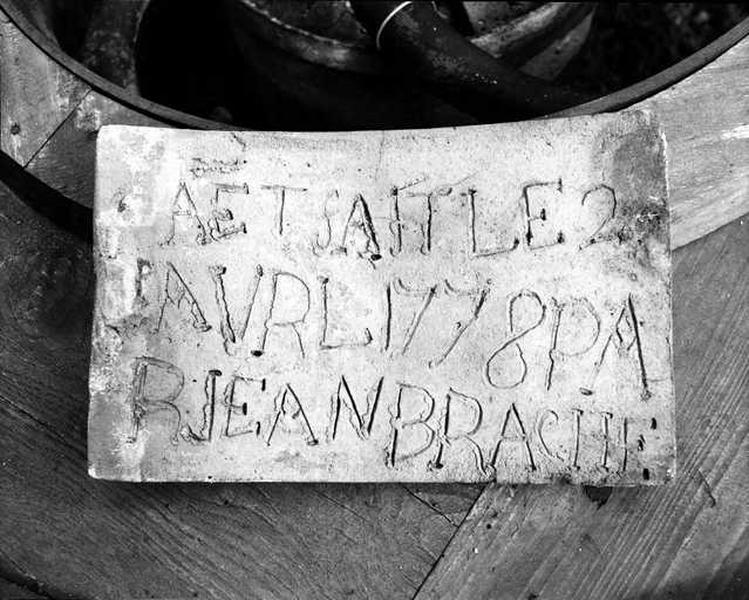 AETSAITLE2
AVRL1778PA
RJEANBRACHE